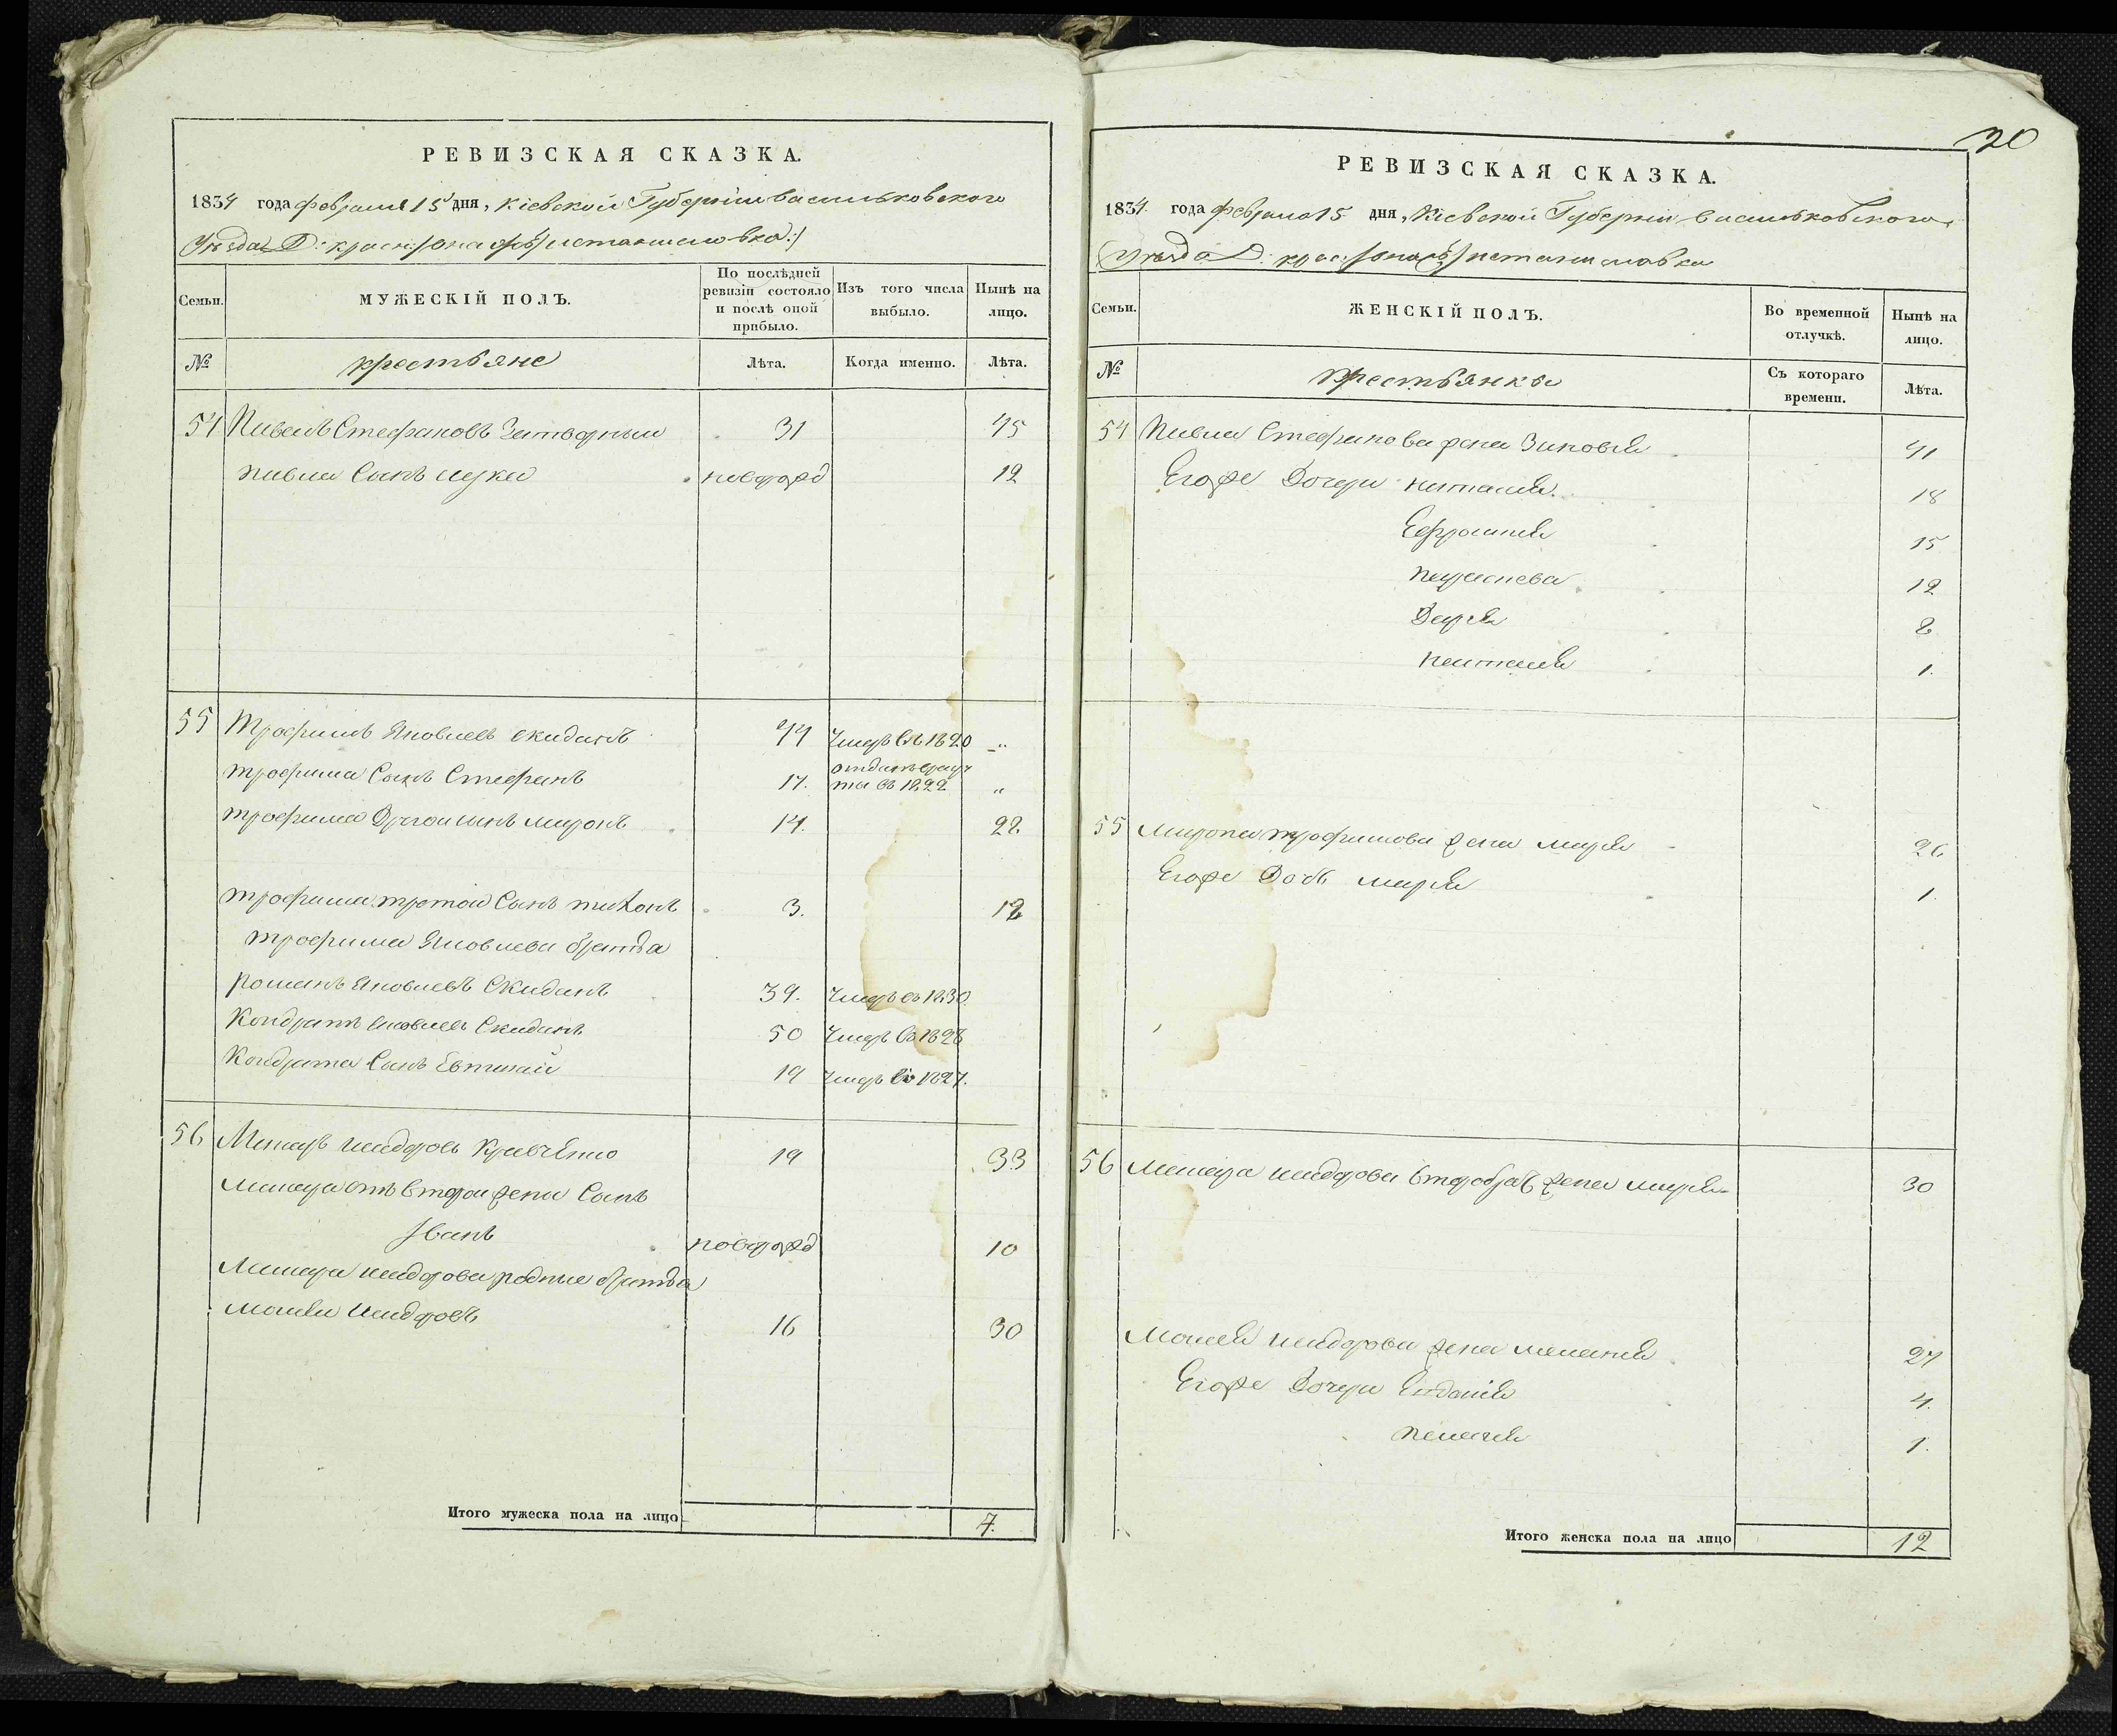 РЕВИЗСКАЯ СКАЗКА.
1834 года февраля 15 дня, Кіевской Губерніи васильковского
Уѣзда Д:
Семьи.
МУЖЕСКІЙ ПОЛЪ.
По послѣдней ревизіи состояло и послѣ оной прибыло.
Изъ того числа выбыло.
Нынѣ на лицо.
№
крестьяне
Лѣта.
Когда именно.
Лѣта.
54 Павелъ Стефановъ 31 45
павла Сынъ лука новорож 12
55 Трофимъ Яковлевъ скиданъ 44 Умеръ въ 1820 "
трофима Сынъ Стефанъ 17. отданъ въ 1822 "
трофима Другои миронъ 14. 22
трофима третои Сынъ тихонъ 3. 12
трофима Яковлева братья
романъ Яковлевъ Скиданъ 39. Умеръ въ 1830
Кондратъ Яковлевъ Скиданъ 50 Умеръ въ 1828
Кондрата Сынъ Евтихий 19 Умеръ въ 1827.
56 Макаръ исидоровъ Кравченко 19 33
Макара отъ второи жены Сынъ
Іванъ новорожд 10
Макара исидорова родные братья
моисеи Исидоровъ 16 30
Итого мужеска пола на лицо 7.
20
РЕВИЗСКАЯ СКАЗКА.
1834 года февраля 15 дня, Кіевской Губерніи васильковского
Уѣзда Д:
Семьи.
ЖЕНСКІЙ ПОЛЪ.
Во временной отлучкѣ.
Нынѣ на лицо.
№
крестьянки
Съ котораго времени.
Лѣта.
54 Павла Стефанова жена Зиновія 41
Егоже Дочери наталія 18
Ефросинія 15
параскева 12
Дарія 8
наталія 1.
55 мирона трофимова жена марія 26
Егоже Дочь марія 1.
56 Макара исидорова жена марія 30
Моисея исидорова жена меланія 27
Егоже Дочери Евдокія 4.
пелагія 1.
Итого женска пола на лицо 12